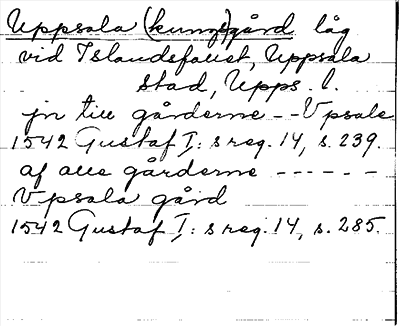 Uppsala (kungs)gård låg
vid Islandsfallet, Uppsala
stad, Upps. l.
jn till gårderne -- Vpsale
1542 Gustaf I:s reg. 14, s. 239.
af alle gårderne ------
Vpsala gård
1542 Gustaf I:s reg. 14, s. 285.